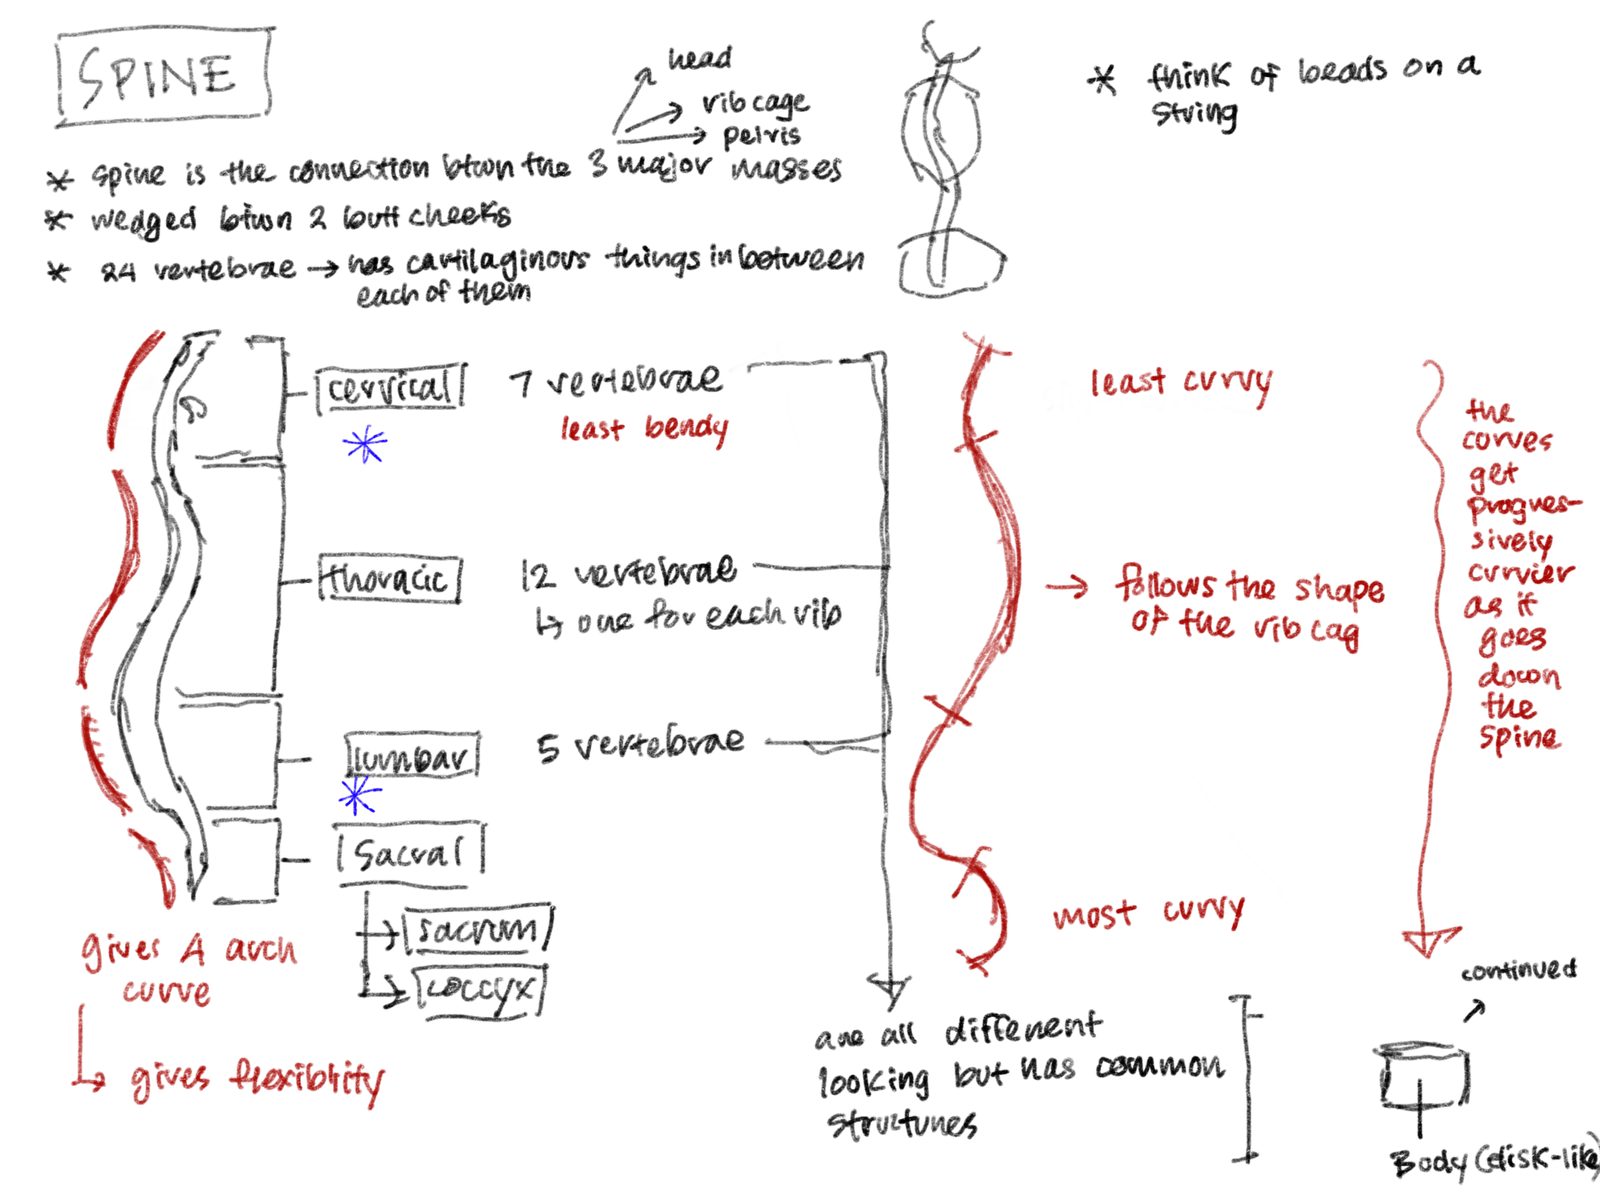 SPINE
head
rib cage
pelvis
* spine is the connection btwn the 3 major masses
* wedged btwn 2 butt cheeks
* 24 vertebrae → has cartilaginous things in between
each of them
* think of beads on a
string
cervical
7 vertebrae
least bendy
thoracic
12 vertebrae
↳ one for each rib
lumbar
5 vertebrae
sacral
→ sacrum
→ coccyx
gives A arch
curve
↳ gives flexiblity
least curvy
→ follows the shape
of the rib cag
most curvy
the
curves
get
progres-
sively
curvier
as it
goes
down
the
spine
are all different
looking but has common
structures
continued
Body (disk-like)